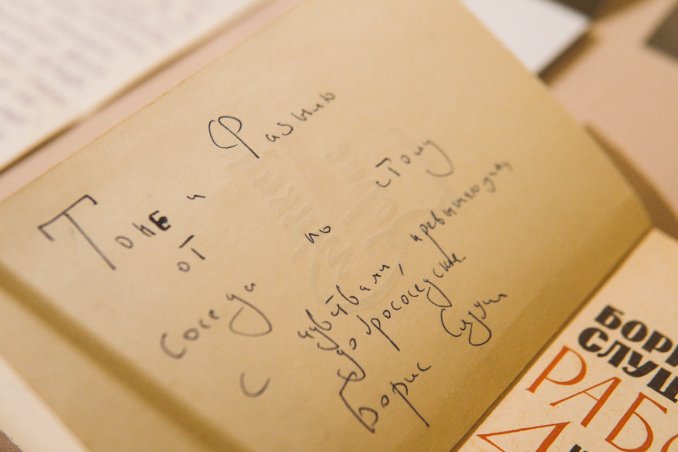 Тоне и Фазилю
от
соседа по столу
с чувствами, превышающими
добрососедские
Борис Слуцкий
БОРИ
СЛУЦ
РАБО